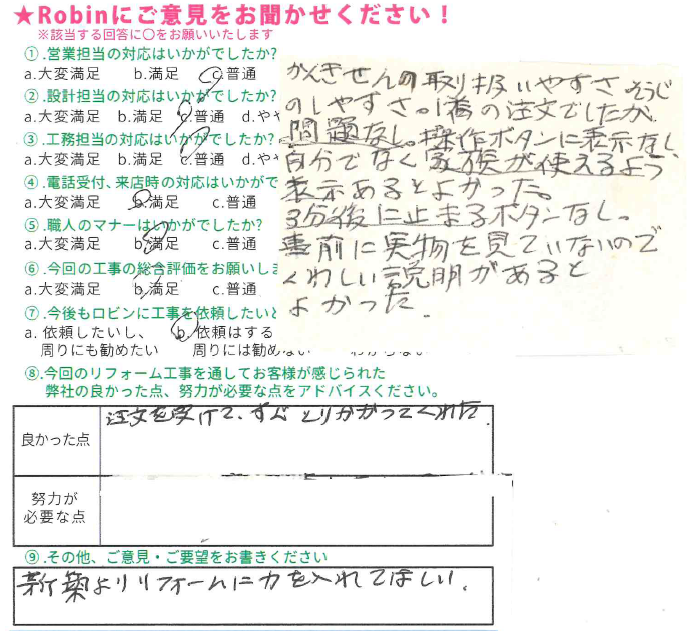 ★Robinにご意見をお聞かせください！
※該当する回答に○をお願いいたします
①.営業担当の対応はいかがでしたか?
a.大変満足 b.満足 c.普通
②.設計担当の対応はいかがでしたか?
a.大変満足 b.満足 c.普通 d.やや
③.工務担当の対応はいかがでしたか?
a.大変満足 b.満足 c.普通 d.やや
④.電話受付、来店時の対応はいかがで
a.大変満足 b.満足 c.普通
⑤.職人のマナーはいかがでしたか?
a.大変満足 b.満足 c.普通
⑥.今回の工事の総合評価をお願いしま
a.大変満足 b.満足 c.普通
⑦.今後もロビンに工事を依頼したいと
a. 依頼したいし、 b.依頼はする
周りにも勧めたい 周りには勧めない わからない
かんきせんの取り扱いやすさ そうじ
のしやすさ。の注文でしたが
問題なし。操作ボタンに表示なし、
自分でなく家族が使えるよう
表示あるとよかった。
3分後に止まるボタンなし。
事前に実物を見ていないので
くわしい説明があると
よかった。
⑧.今回のリフォーム工事を通してお客様が感じられた
弊社の良かった点、努力が必要な点をアドバイスください。
良かった点
注文を受けて、すぐとりかかってくれた。
努力が
必要な点
⑨.その他、ご意見・ご要望をお書きください
新築よりリフォームに力を入れてほしい。